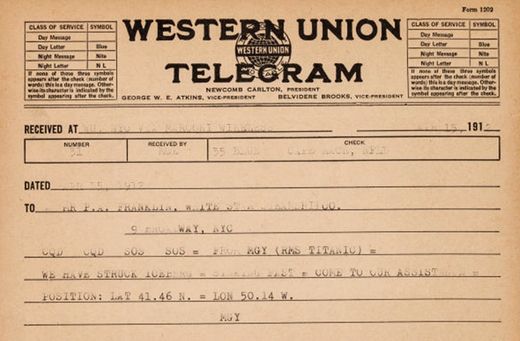 Form 1202
CLASS OF SERVICE SYMBOL
Day Message
Day Letter Blue
Night Message Nite
Night Letter N L
If none of these three symbols
appears after the check (number of
words) this is a day message. Other-
wise its character is indicated by the
symbol appearing after the check.
WESTERN UNION
WESTERN UNION
TELEGRAM
NEWCOMB CARLTON, PRESIDENT
GEORGE W. E. ATKINS, VICE-PRESIDENT BELVIDERE BROOKS, VICE-PRESIDENT
CLASS OF SERVICE SYMBOL
Day Message
Day Letter Blue
Night Message Nite
Night Letter N L
If none of these three symbols
appears after the check (number of
words) this is a day message. Other-
wise its character is indicated by the
symbol appearing after the check.
RECEIVED AT 15, 191
NUMBER RECEIVED BY CHECK
31 35 CAPE RACE,
DATED 15, 1912
TO MR P.A. FRANKLIN, WHITE STAR CO.
9 BROADWAY, NYC
CQD CQD SOS SOS = FROM MGY (RMS TITANIC) =
WE HAVE STRUCK ICEBERG = SINKING FAST = COME TO OUR ASSISTANCE =
POSITION: LAT 41.46 N. = LON 50.14 W.
MGY